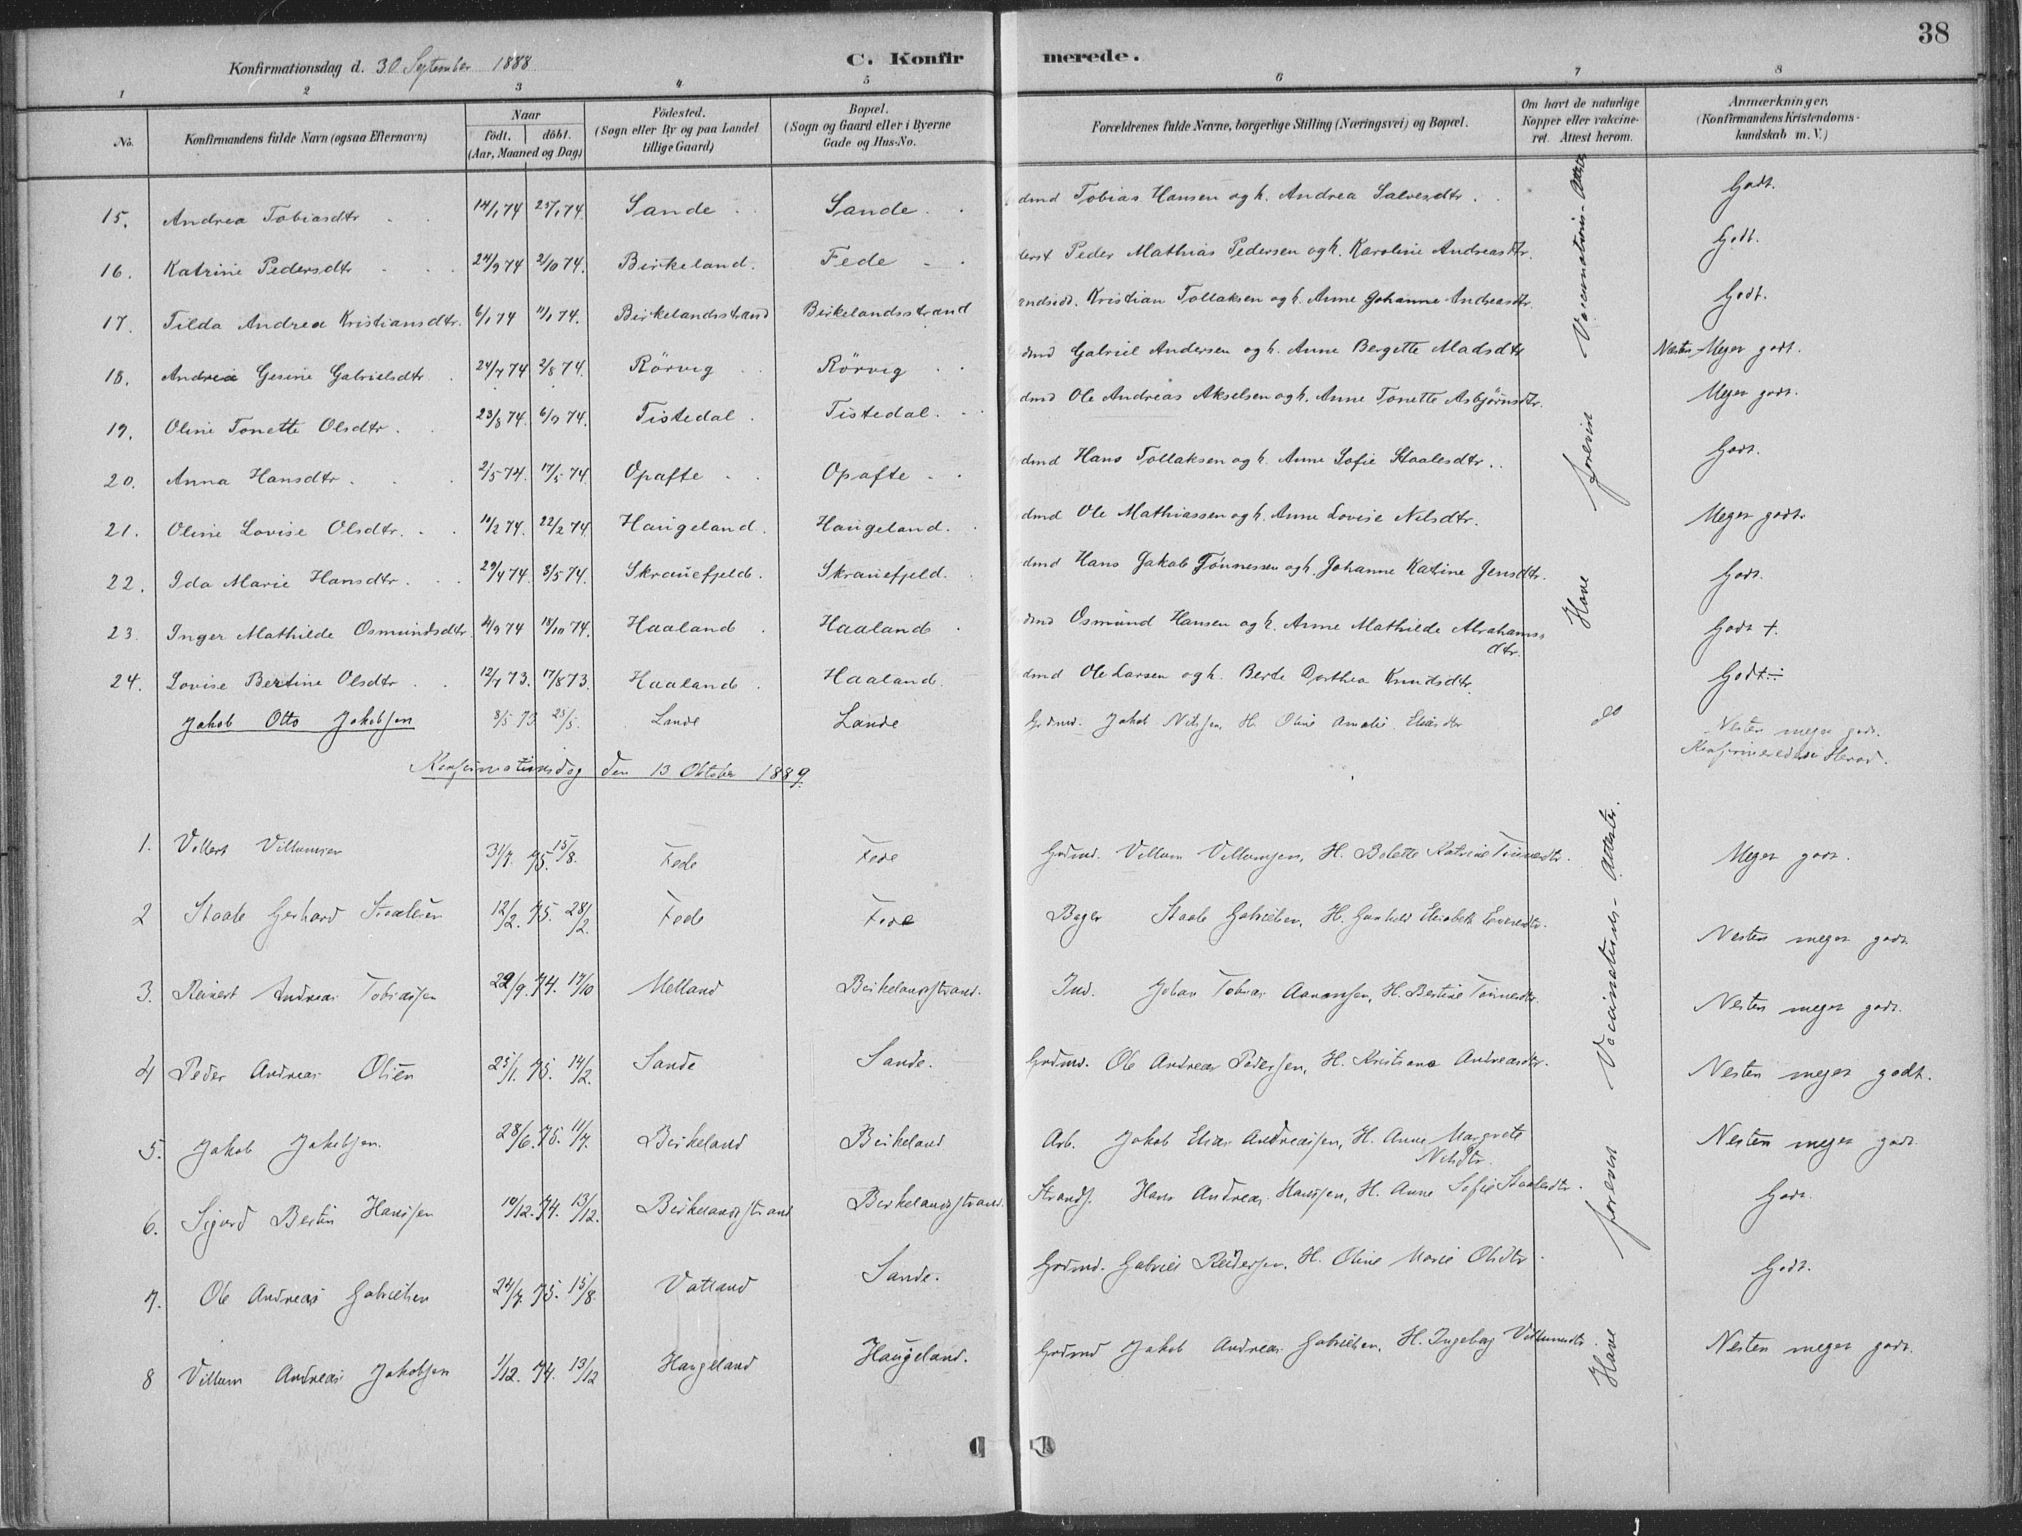 38
Konfirmationsdag d. 30 September 1888
C. Konfirmerede.
1 2 3 4 5 6 7 8
No.
Konfirmandens fulde Navn (ogsaa Efternavn)
Naar
födt. döbt.
(Aar, Maaned og Dag)
Födested.
(Sogn eller By og paa Landet
tillige Gaard)
Bopæl.
(Sogn og Gaard eller i Byerne
Gade og Hus-No.
Forældrenes fulde Navne, borgerlige Stilling (Næringsvei) og Bopæl.
Om havt de naturlige
Kopper eller vakcine-
ret. Attest herom.
Anmærkninger.
(Konfirmandens Kristendoms-
kundskab m. V.)
15. Andrea Tobiasdtr 14/1 74 25/1 74. Sande Sande Tobias Hansen og h. Andrea Salvesdtr. Godt.
16. Katrine Pedersdtr 24/9 74 2/10 74. Birkeland. Fede Peder Mathias Pedersen og h. Karoline Andreasdtr. Godt.
17. Tilda Andrea Kristiansdtr. 6/1 74 11/1 74. Birkelandsstrand Birkelandsstrand Kristian Tollaksen og h. Anne Johanne Andreasdtr. Godt.
18. Andrea Gesine Gabrielsdtr. 24/7 74 2/8 74. Rörvig Rörvig Gabriel Andersen og h. Anne Bergitte Madsdtr Næsten Meget godt.
19. Oline Tonette Olsdtr. 23/8 74. 6/9 74. Tistedal. Tistedal. Ole Andreas Akselsen og h. Anne Tonette Asbjörnsdtr. Meget godt.
20. Anna Hansdtr. 2/5 74. 17/5 74. Opafte Opafte Hans Tollaksen og h. Anne Sofie Staalesdtr. Godt.
21. Oline Lovise Olsdtr. 10/2 74. 22/2 74. Haugeland. Haugeland. Ole Mathiassen og h. Anne Lovise Nilsdtr. Meget godt.
22. Ida Marie Hansdtr. 29/4 74. 3/5 74. Skrauefjeld. Skrauefjeld. Hans Jakob Tönnessen og h. Johanne Katine Jensdtr. Godt.
23. Inger Mathilde Osmundsdtr. 4/9 74 18/10 74. Haaland Haaland Osmund Hansen og h. Anne Mathilde Abrahams-
dtr. Godt +.
24. Lovise Bertine Olsdtr 12/7 73. 17/8 73. Haaland. Haaland. Ole Larsen og h. Berte Dorthea Knudsdtr. Godt ÷
Jakob Otto Jakobsen 8/5 73. 25/5. Lande Lande Grdmd. Jakob Nilsen, H. Oline Amalie Eliasdtr do Nesten meget godt.
Konfirmeret i Herad.
Have forevist Vaccinations-Attest
Konfirmationsdag den 13 Oktober 1889.
1. Villert Villumsen 31/7. 75. 15/8. Fede Fede Grdmd. Villum Villumsen, H. Bolette Katrine Tönnesdtr. Meget godt.
2 Staale Gerhard Staalesen 12/2. 75. 28/2. Fede Fede Bager Staale Gabrielsen, H. Gunhild Elisabeth Nesten meget godt.
3. Reinert Andreas Tobiassen 29/9. 74. 17/10 Melland Birkelandsstrand. Ind. Johan Tobias Aanensen, H. Bertine Tönnesdtr. Nesten meget godt.
4 Peder Andreas Olsen 25/1. 75. 14/2. Sande Sande. Grdmd. Ole Andreas Pedersen, H. Kristiane Andreasdtr. Nesten meget godt.
5. Jakob Jakobsen. 28/6. 75. 11/7. Birkeland Birkeland Arb. Jakob Elias Andreassen, H. Anne Margrete
Nilsdtr. Nesten meget godt
6. Sigurd Bertin Hanssen 10/12. 74. 13/12. Birkelandsstrand Birkelandsstrand. Strands. Hans Andreas Hanssen, H. Anne Sofie Staalesdtr. Godt.
7. Ole Andreas Gabrielsen 24/7. 75. 15/8. Vatland Sande. Grdmd. Gabriel Reidersen, H. Oline Marie Olsdtr. Godt.
8 Villum Andreas Jakobsen 1/12. 74. 13/12 Haugeland Haugeland. Grdmd Jakob Andreas Gabrielsen, H. Ingeborg Villumsdtr Nesten meget godt.
Have forevist Vaccinations-Attester.